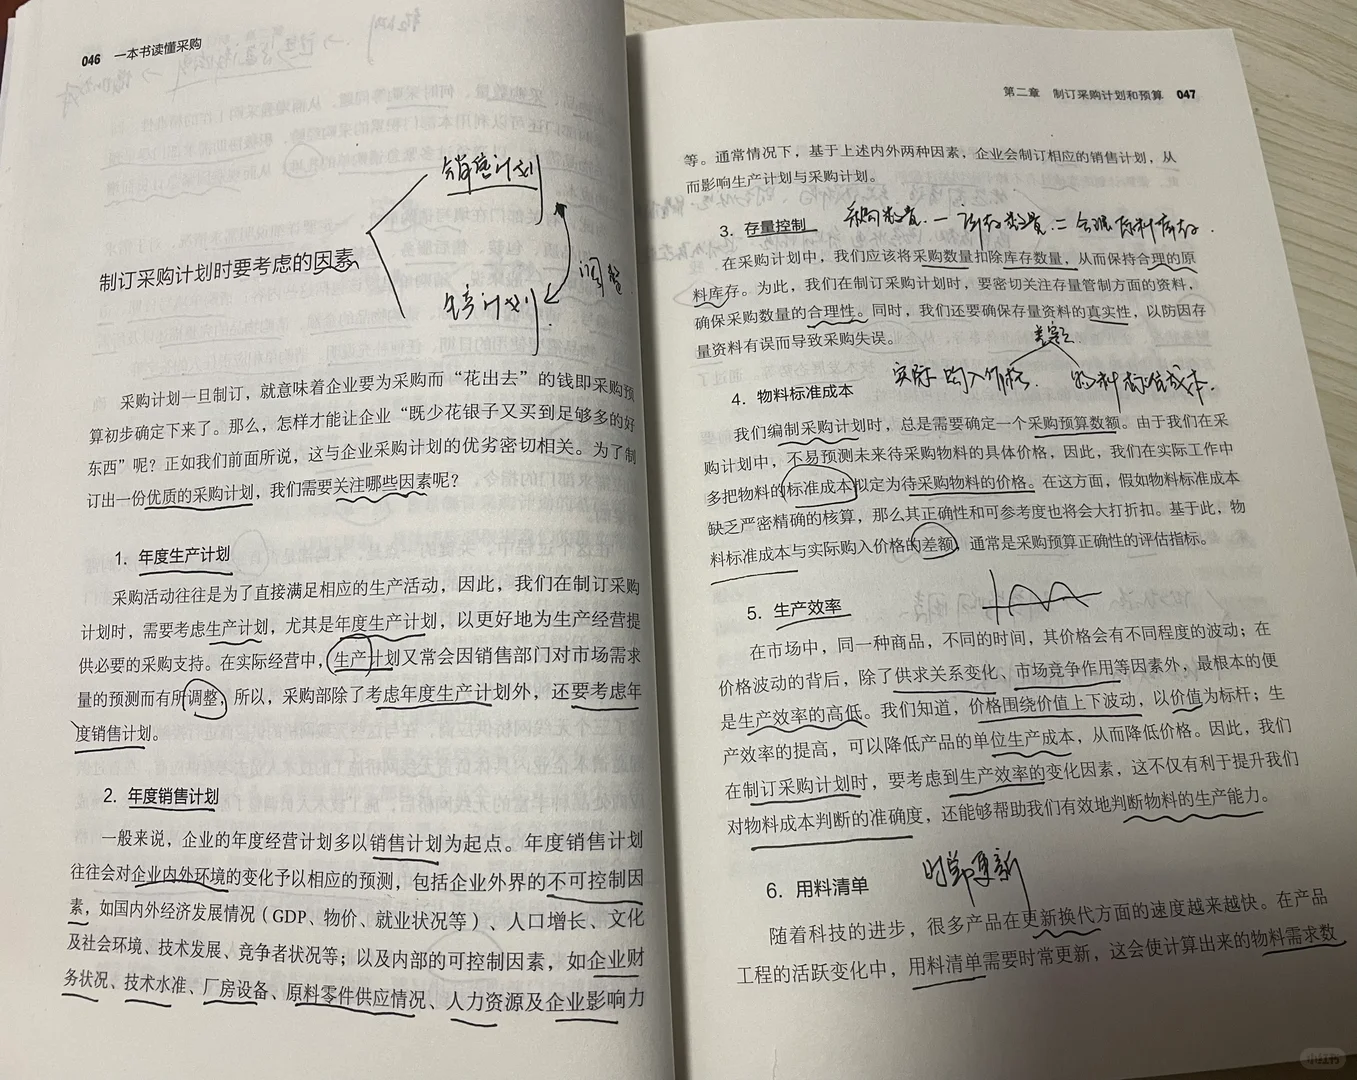 046 一本书读懂采购
销售计划
制订采购计划时要考虑的因素
调整
生产计划
采购计划一旦制订，就意味着企业要为采购而“花出去”的钱即采购预
算初步确定下来了。那么，怎样才能让企业“既少花银子又买到足够多的好
东西”呢？正如我们前面所说，这与企业采购计划的优劣密切相关。为了制
订出一份优质的采购计划，我们需要关注哪些因素呢？
1. 年度生产计划
采购活动往往是为了直接满足相应的生产活动，因此，我们在制订采购
计划时，需要考虑生产计划，尤其是年度生产计划，以更好地为生产经营提
供必要的采购支持。在实际经营中，生产计划又常会因销售部门对市场需求
量的预测而有所调整，所以，采购部除了考虑年度生产计划外，还要考虑年
度销售计划。
2. 年度销售计划
一般来说，企业的年度经营计划多以销售计划为起点。年度销售计划
往往会对企业内外环境的变化予以相应的预测，包括企业外界的不可控制因
素，如国内外经济发展情况（GDP、物价、就业状况等）、人口增长、文化
及社会环境、技术发展、竞争者状况等；以及内部的可控制因素，如企业财
务状况、技术水准、厂房设备、原料零件供应情况、人力资源及企业影响力
第二章 制订采购计划和预算 047
等。通常情况下，基于上述内外两种因素，企业会制订相应的销售计划，从
而影响生产计划与采购计划。
采购数量 - 库存数量 = 合理原料库存.
3. 存量控制
在采购计划中，我们应该将采购数量扣除库存数量，从而保持合理的原
料库存。为此，我们在制订采购计划时，要密切关注存量管制方面的资料，
确保采购数量的合理性。同时，我们还要确保存量资料的真实性，以防因存
量资料有误而导致采购失误。
差额
实际购入价格. 物料标准成本.
4. 物料标准成本
我们编制采购计划时，总是需要确定一个采购预算数额。由于我们在采
购计划中，不易预测未来待采购物料的具体价格，因此，我们在实际工作中
多把物料的标准成本拟定为待采购物料的价格。在这方面，假如物料标准成本
缺乏严密精确的核算，那么其正确性和可参考度也将会大打折扣。基于此，物
料标准成本与实际购入价格的差额，通常是采购预算正确性的评估指标。
5. 生产效率
在市场中，同一种商品，不同的时间，其价格会有不同程度的波动；在
价格波动的背后，除了供求关系变化、市场竞争作用等因素外，最根本的便
是生产效率的高低。我们知道，价格围绕价值上下波动，以价值为标杆；生
产效率的提高，可以降低产品的单位生产成本，从而降低价格。因此，我们
在制订采购计划时，要考虑到生产效率的变化因素，这不仅有利于提升我们
对物料成本判断的准确度，还能够帮助我们有效地判断物料的生产能力。
时常更新
6. 用料清单
随着科技的进步，很多产品在更新换代方面的速度越来越快。在产品
工程的活跃变化中，用料清单需要时常更新，这会使计算出来的物料需求数
小红书